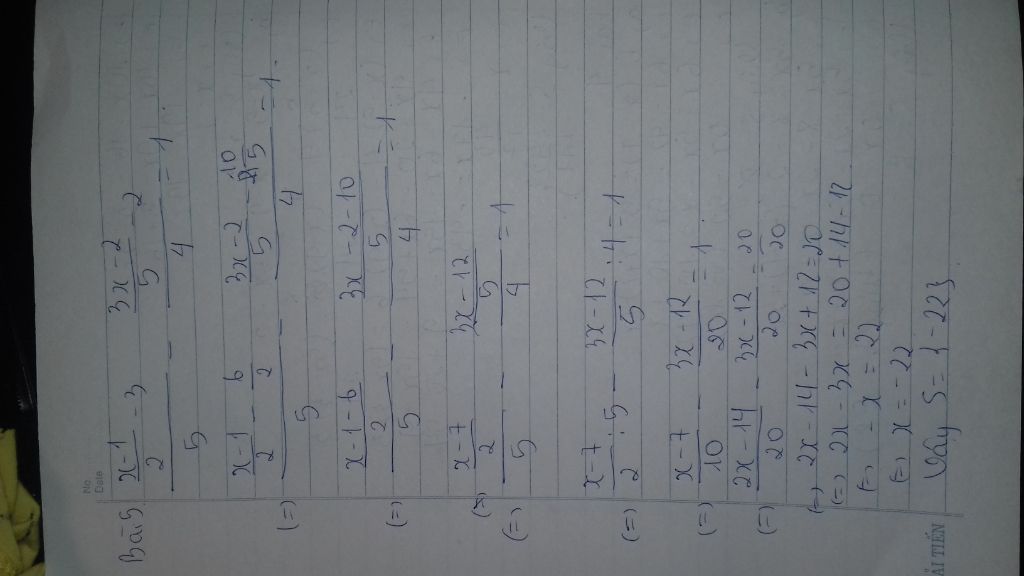 No.
Date
Bài 5
((x-1)/2 - 3)/5 - ((3x-2)/5 - 2)/4 = 1
(=) ((x-1)/2 - 6/2)/5 - ((3x-2)/5 - 10/5)/4 = 1.
(=) ((x-1-6)/2)/5 - ((3x-2-10)/5)/4 = 1
(=) ((x-7)/2)/5 - ((3x-12)/5)/4 = 1
(=) (x-7)/2 : 5 - (3x-12)/5 : 4 = 1
(=) (x-7)/10 - (3x-12)/20 = 1
(=) (2x-14)/20 - (3x-12)/20 = 20/20
(=) 2x-14-3x+12=20
(=) 2x-3x = 20+14-12
(=) -x = 22
(=) x = -22
Vậy S = {-22}
ẢI TIẾN